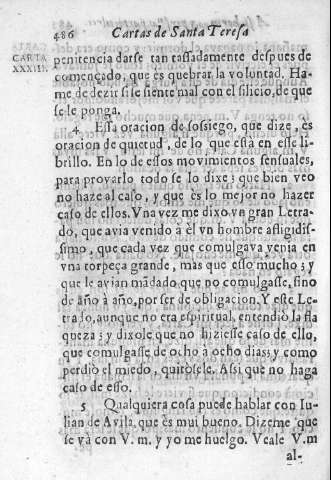 486 Cartas de Santa Teresa
CARTA XXXIII.
penitencia darse tan tassadamente despues de
començado, que es quebrar la voluntad. Ha-
me de dezir si se siente mal con el silicio, de que
se le ponga.
4 Essa oracion de sossiego, que dize, es
oracion de quietud, de lo que està en esse li-
brillo. En lo de essos movimientos sensuales,
para provarlo todo se lo dixe; que bien veo
no haze al caso, y que es lo mejor no hazer
caso de ellos. Vna vez me dixo vn gran Letra-
do, que avia venido à èl vn hombre afligidis-
simo, que cada vez que comulgava venia en
vna torpeça grande, mas que esso mucho; y
que le avian mãdado que no comulgasse, sino
de año à año, por ser de obligacion. Y este Le-
trado, aunque no era espiritual, entendiò la fla
queza; y dixole que no hiziesse caso de ello,
que comulgasse de ocho à ocho dias; y como
perdiò el miedo, quitòsele. Assi que no haga
caso de esso.
5 Qualquiera cosa puede hablar con Iu-
lian de Avila, que es mui bueno. Dizeme que
se và con V. m. y yo me huelgo. Veale V. m
al-